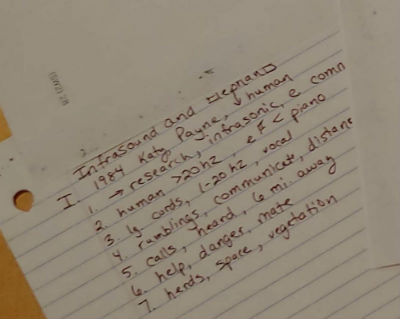 Infrasound and Elephants
I. 1984 Katy Payne, ↓ human
1. → research, infrasonic, e comm
2. human >20hz, e f < piano
3. lg cords, 1-20hz, vocal
4. ramblings, communicate, distane
5. calls, heard, 6 mi. away
6. help, danger, mate
7. herds, space, vegetation